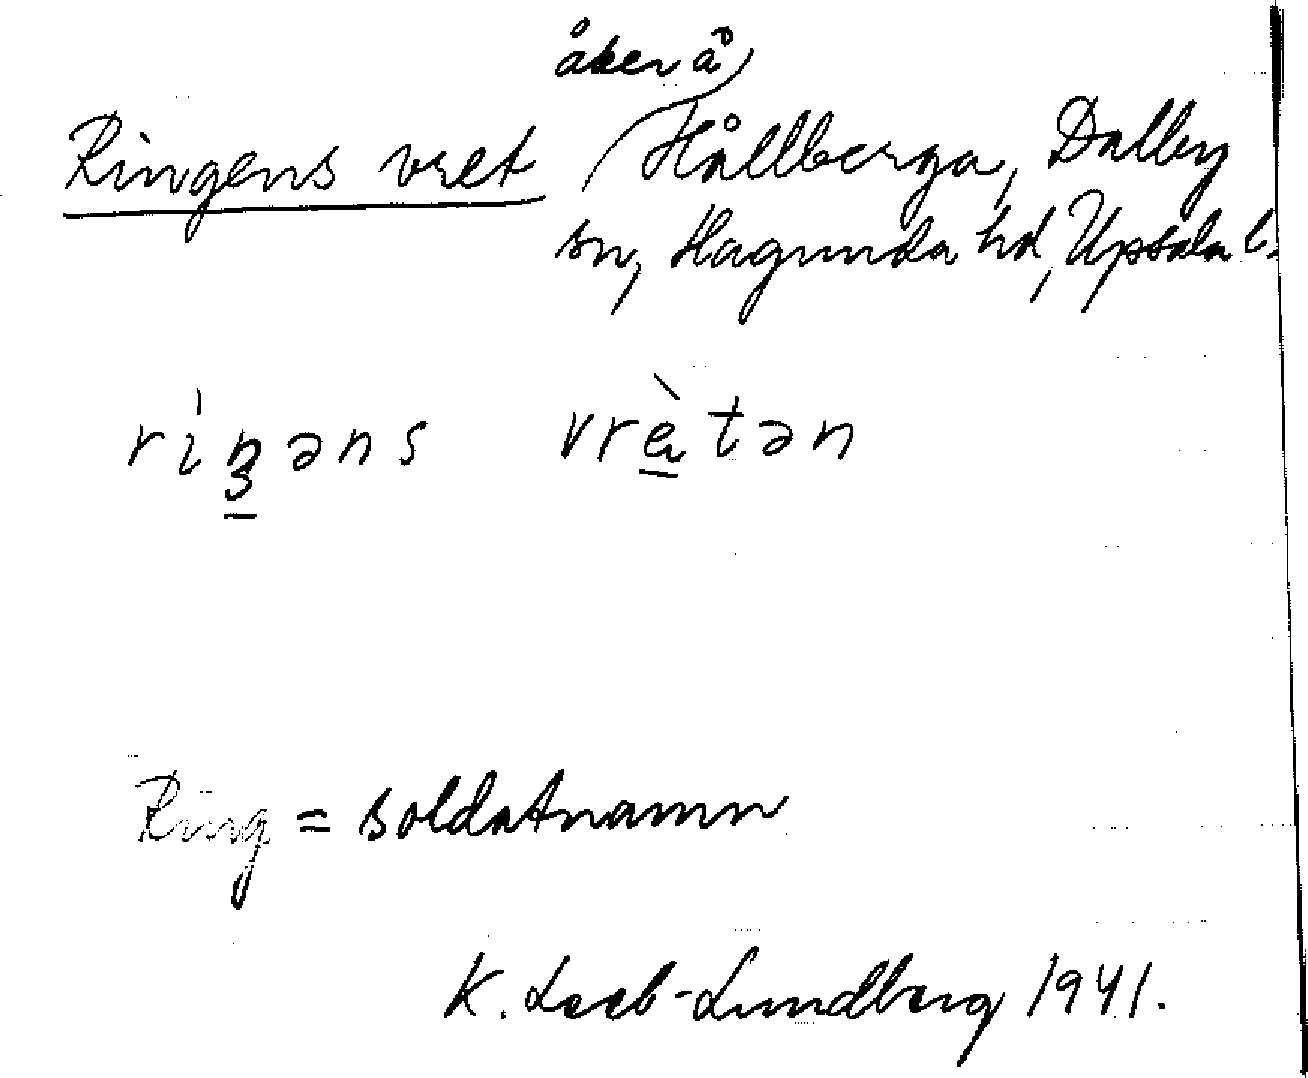 åker å
Ringens vret Hållberga, Dalby
sn, Hagunda hd, Upsala l.
ríŋəns vrètən
Ring = soldatnamn
K. Leeb-Lundberg 1941.